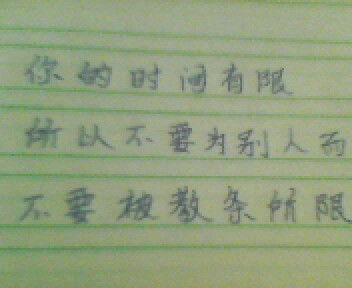 你的时间有限
所以不要为别人而
不要被教条所限